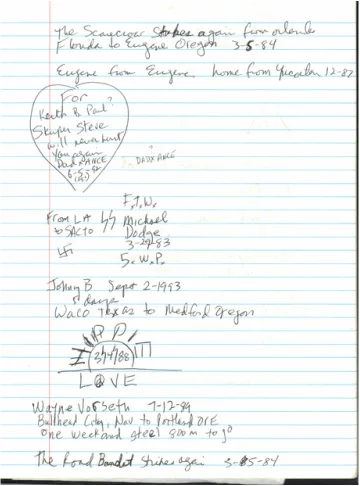 The Scarcrow Strikes again from orlando
Florida to Eugene Oregon 3-5-84
Eugene from Eugene. home from Yucatan 12-87
For
Keith B Paul?
Skyper Steve
will never hurt
you again
DadxANCE
DADXANCE
F.T.W.
From LA
to SACTO
Michael
Dodge
3-29-83
S.W.P.
Johny B Sept 2-1993
5 days
Waco Texas to Medford Oregon
H A P P I E
3/4/88
LOVE
Wayne Vorseth 7-12-89
Bullhead City, Nev to Portland ORE
one weekend steel 800m to go
The Road Bandit Strikes again 3-5-84